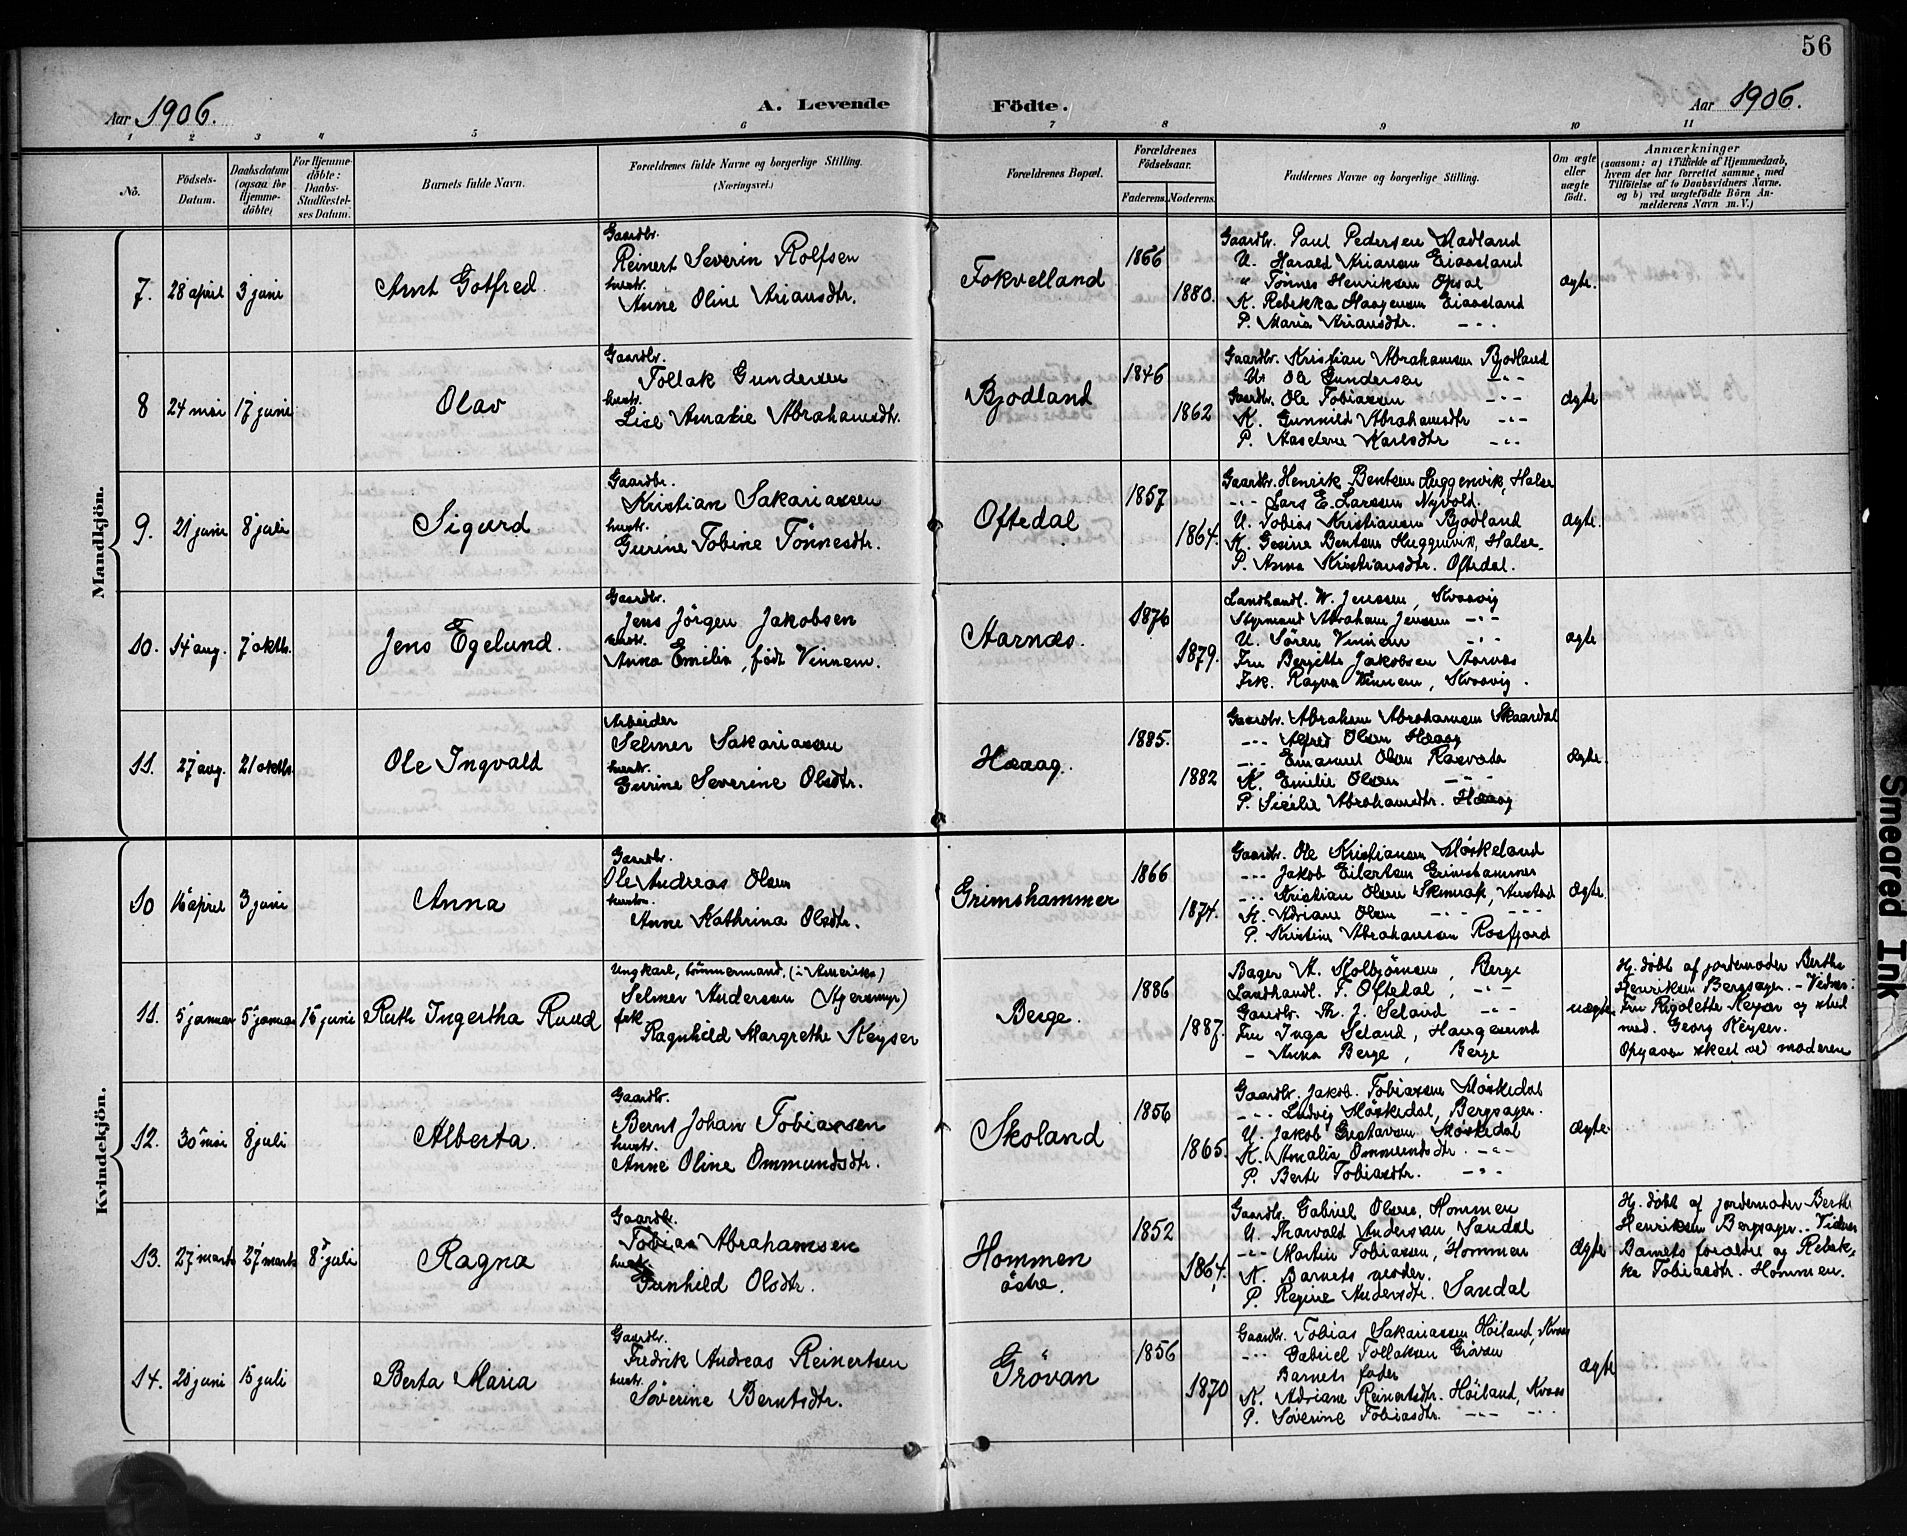 56
Aar 1906.
A. Levende Födte.
Aar 1906.
1 2 3 4 5 6 7 8 9 10 11
No.
Födsels-Datum.
Daabsdatum (ogsaa for Hjemme-döbte)
For Hjemme-döbte: Daabs-Stadfæstel-ses Datum.
Barnets fulde Navn.
Forældrenes fulde Navne og borgerlige Stilling.
(Næringsvei.)
Forældrenes Bopæl.
Forældrenes Födselsaar.
Faderens. Moderens.
Faddernes Navne og borgerlige Stilling.
Om ægte eller uægte födt.
Anmærkninger
(saasom: a) i Tilfælde af Hjemmedaab,
hvem der har forrettet samme, med
Tilföielse af to Daabsvidners Navne,
og b) ved uægtefödte Börn An-
melderens Navn m. V.)
Mandkjön.
7. 28 april 3 juni Arnt Gotfred.
Gaardbr.
Reinert Severin Rolfsen
hustr.
Anne Oline Ariansdtr.
Fokvelland 1866 1880.
Gaardbr. Paul Pedersen Aadland
U. Harald Ariansen Eiaasland
" Tönnes Henriksen Opsal
K. Rebekka Haagensen Eiaasland
P. Maria Ariansdtr. -"-
ægte.
8 24 mai 17 juni Olav
Gaardbr.
Tollak Gundersen
hustr.
Lise Amalie Abrahamsdtr.
Bjodland 1846 1862
Gaardbr. Kristian Abrahamsen Bjodland
U. Ole Gundersen -"-
Gaardbr. Ole Tobiassen -"-
K. Gunnild Abrahamsdtr -"-
P. Aaselene Karlsdtr -"-
ægte
9. 21 juni 8 juli Sigurd
Gaardbr.
Kristian Sakariassen
hustr.
Gurine Tobine Tönnesdtr.
Oftedal 1857 1864.
Gaardbr. Henrik Bentsen Huggenvik, Halse
-"- Lars E. Larssen Nyvold.
U. Tobias Kristiansen Bjodland
K. Gesine Bentsen Huggenvik, Halse.
P. Anna Kristiansdtr. Oftedal.
ægte.
10. 14 aug. 7 oktbr. Jens Egelund.
Gaardbr.
Jens Jörgen Jakobsen
hustr.
Anna Emilie, födt Vinnem.
Aarnæs. 1876 1879.
Landhandl. W. Jenssen, Kvaavig
Styrmand Abraham Jenssen -"-
U. Sören Vinnem -"-
Fru Bergitte Jakobsen Aarnæs
Frk. Ragna Vinnem, Kvaavig.
ægte
11. 27 aug. 21 oktbr. Ole Ingvald
Arbeider
Selmer Sakariassen
hustr.
Gurine Severine Olsdtr.
Haaag. 1885. 1882
Gaardbr. Abraham Abrahamsen Skaardal
-"- Alfred Olsen Haaag
-"- Emanuel Olsen
K. Emilie Olsen -"-
P. Sicilie Abrahamsdtr. Haaag
ægte.
Kvindekjön.
10 16 april 3 juni Anna
Gaardbr.
Ole Andreas Olsen
hustru
Anne Kathrina Olsdtr.
Grimshammer 1866 1874.
Gaardbr. Ole Kristiansen Møskeland
-"- Jakob Eilertsen Grimshammer
-"- Kristian Olsen
K. Adriane Olsen -"- -"-
P. Kristine Abrahamsen Rosfjord
ægte.
11. 5 januar 5 januar 15 juni Ruth Ingertha Ruud
Ungkarl, tömmermand, (i Amerika)
Selmer Andersen (Agersmyr)
frk
Ragnhild Margrethe Keyser
Berge. 1886 1887.
Bager A. Kolbjörnsen, Berge
Landhandl. T. Oftedal, -"-
Gaardbr. Th. J. Seland -"-
Fru Inga Seland, Haugesund
- Anna Berge, Berge
uægte.
Hj. döbt af jordemoder Berthe
Henriksen Bergsager. - Vidner:
Fru Rigolette Keyser og stud.
med. Georg Keyser.
Opgaven skeet ved moderen
12. 30 mai 8 juli Alberta.
Gaardbr.
Bernt Johan Tobiassen
hustr.
Anne Oline Ommundsdtr.
Skoland 1856 1865.
Gaardbr. Jakob Tobiassen Møskedal
-"- Ludvig Møskedal, Bergsager.
U. Jakob Gustavsen Møskedal
K. Amalia Ommundsdtr. -"-
P. Berte Tobiasdtr. -"-
ægte.
13. 27 marts 27 marts 8 juli Ragna
Gaardbr.
Tobias Abrahamsen
hustr.
Gunhild Olsdtr.
Hommen östre. 1852 1864.
Gaardbr. Gabriel Olsen, Hommen
U. Tharvald Andersen, Sandal
-"- Martin Tobiassen, Hommen
K. Barnets moder.
P. Regine Andersdtr. Sandal
ægte
Hj. döbt af jordemoder Berthe
Henriksen Bergsager. - Vidner
Barnets forældre og Rebek-
ka Tobiasdtr. Hommen.
14. 20 juni 15 juli Berta Maria
Gaardbr.
Fredrik Andreas Reinertsen
hustr.
Søverine Berntsdtr.
Grövan 1856 1870
Gaardbr. Tobias Sakariassen Höiland, Kvaas
-"- Gabriel Tollaksen Grövan
Barnets fader
K. Adriane Reinertsdtr. Höiland, Kvaas
P. Søverine Tobiasdtr. -"- -"-
ægte
Smeared Ink